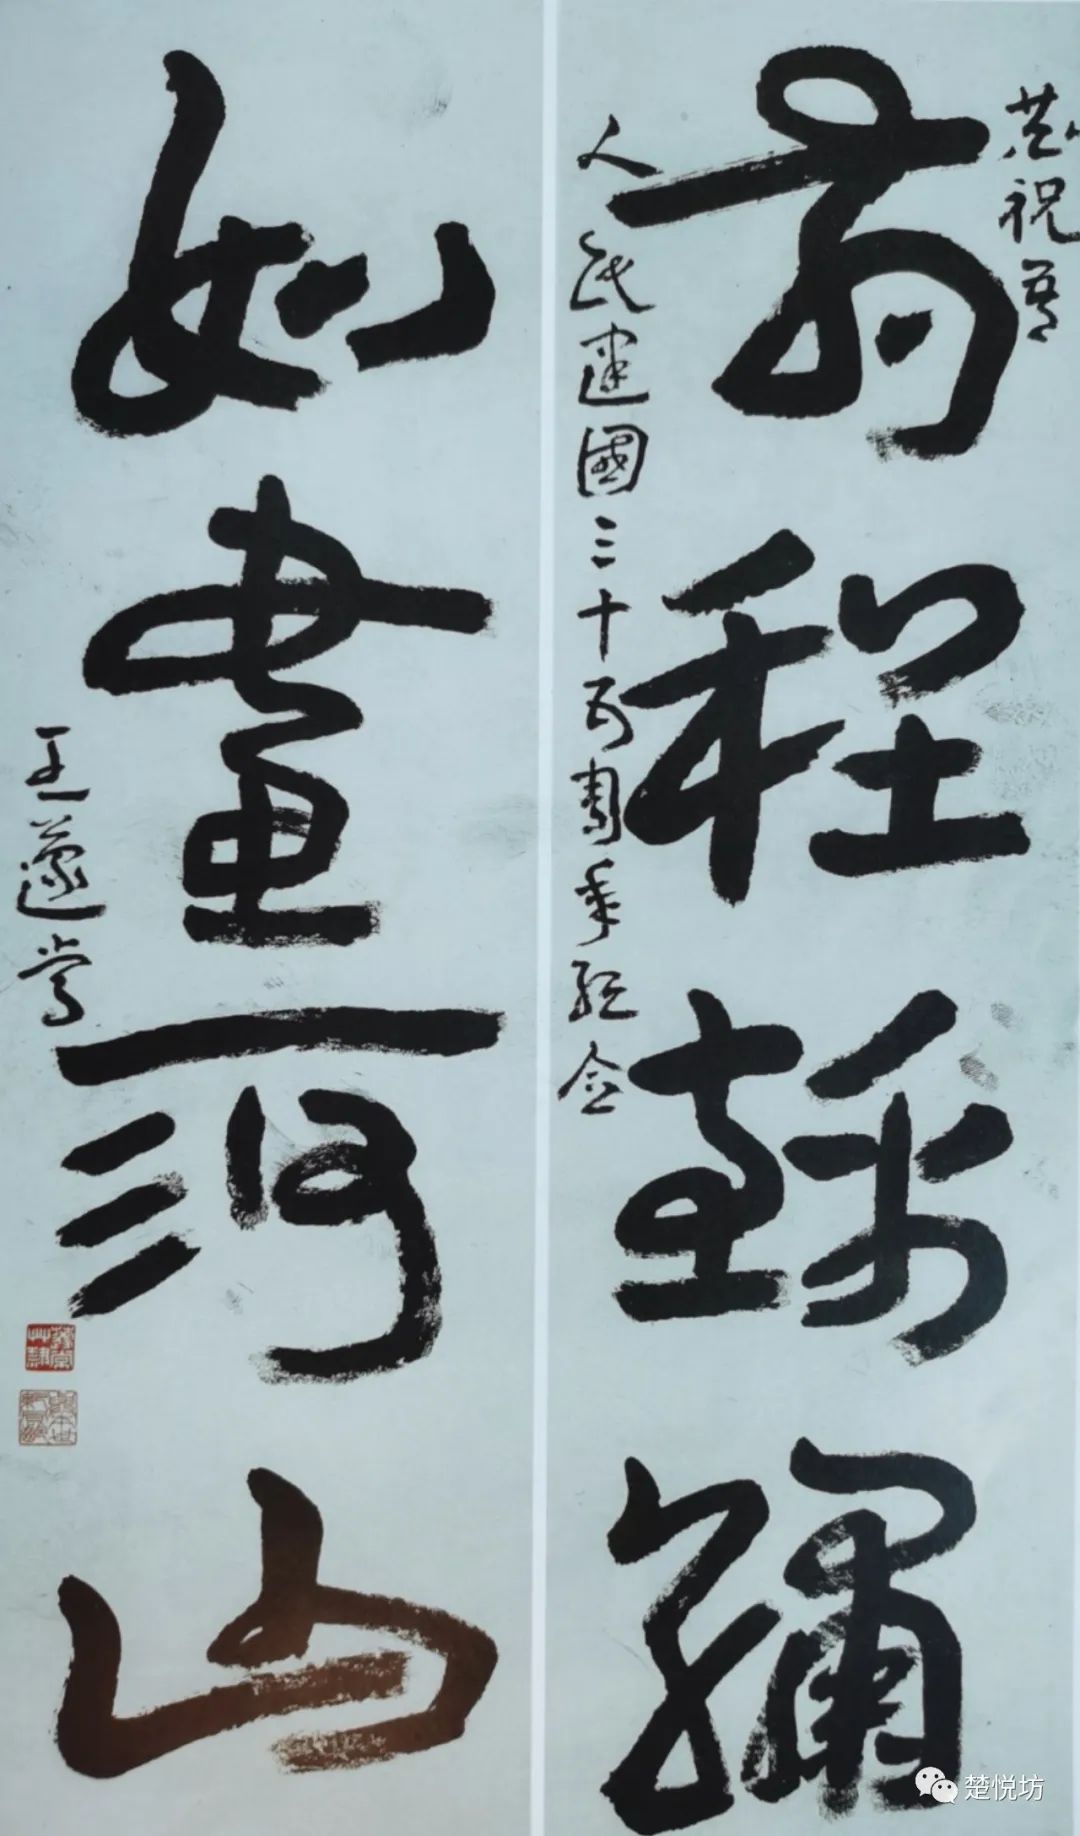 恭祝吾
前程錦繡
人民建國三十五周年紀念
如畫河山
王蘧常
楚悦坊